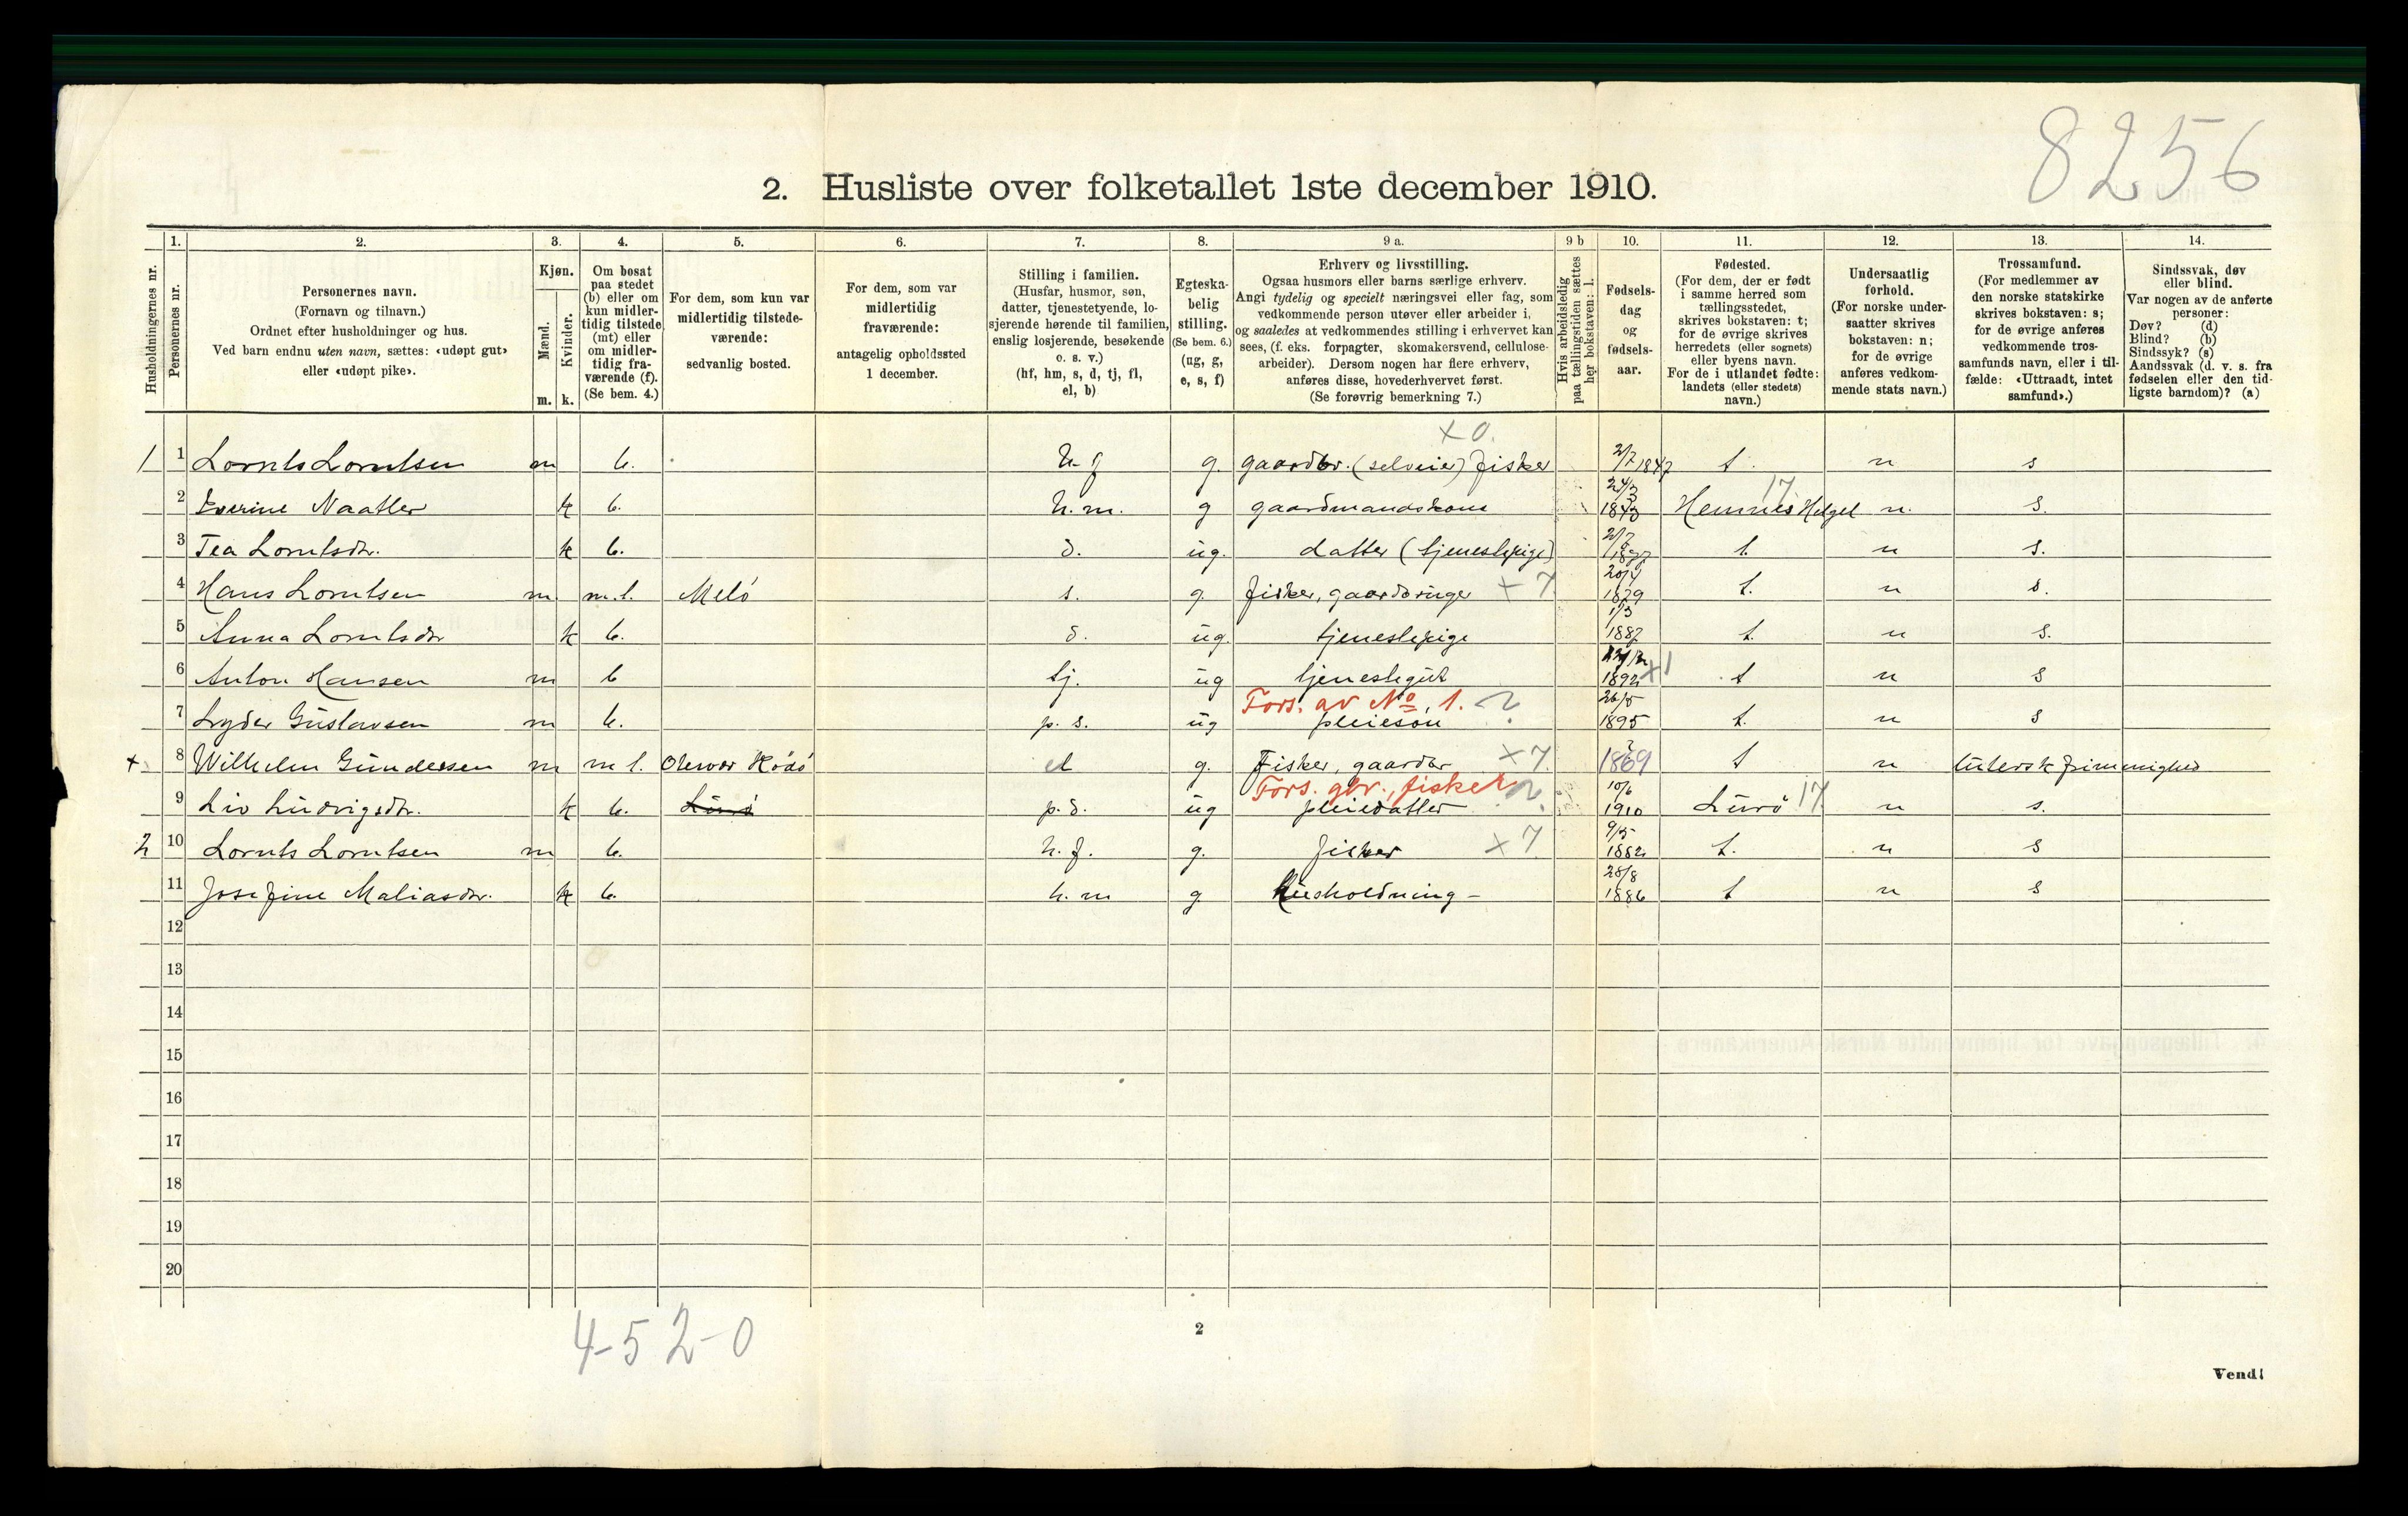 8256
2. Husliste over folketallet 1ste december 1910.
Husholdningernes nr.
1. Personernes nr.
2. Personernes navn.
(Fornavn og tilnavn.)
Ordnet efter husholdninger og hus.
Ved barn endnu uten navn, sættes: «udøpt gut»
eller «udøpt pike».
3. Kjøn.
Mænd. m.
Kvinder. k.
4. Om bosat
paa stedet
(b) eller om
kun midler-
tidig tilstede
(mt) eller
om midler-
tidig fra-
værende (f).
(Se bem. 4.)
5. For dem, som kun var
midlertidig tilstede-
værende:
sedvanlig bosted.
6. For dem, som var
midlertidig
fraværende:
antagelig opholdssted
1 december.
7. Stilling i familien.
(Husfar, husmor, søn,
datter, tjenestetyende, lo-
sjerende hørende til familien,
enslig losjerende, besøkende
o. s. v.)
(hf, hm, s, d, tj, fl,
el, b)
8. Egteska-
belig
stilling.
(Se bem. 6.)
(ug, g,
e, s, f)
9 a. Erhverv og livsstilling.
Ogsaa husmors eller barns særlige erhverv.
Angi tydelig og specielt næringsvei eller fag, som
vedkommende person utøver eller arbeider i,
og saaledes at vedkommendes stilling i erhvervet kan
sees, (f. eks. forpagter, skomakersvend, cellulose-
arbeider). Dersom nogen har flere erhverv,
anføres disse, hovederhvervet først.
(Se forøvrig bemerkning 7.)
9 b Hvis arbeidsledig
paa tællingstiden sættes
her bokstaven: l.
10. Fødsels-
dag
og
fødsels-
aar.
11. Fødested.
(For dem, der er født
i samme herred som
tællingsstedet,
skrives bokstaven: t;
for de øvrige skrives
herredets (eller sognets)
eller byens navn.
For de i utlandet fødte:
landets (eller stedets)
navn.)
12. Undersaatlig
forhold.
(For norske under-
saatter skrives
bokstaven: n;
for de øvrige
anføres vedkom-
mende stats navn.)
13. Trossamfund.
(For medlemmer av
den norske statskirke
skrives bokstaven: s;
for de øvrige anføres
vedkommende tros-
samfunds navn, eller i til-
fælde: «Uttraadt, intet
samfund».)
14. Sindssvak, døv
eller blind.
Var nogen av de anførte
personer:
Døv? (d)
Blind? (b)
Sindssyk? (s)
Aandssvak (d. v. s. fra
fødselen eller den tid-
ligste barndom)? (a)
x 0.
1 1 Lornts Lorntsen m b. h. f g. gaardbr. (selveier) fisker 2/7 1847 t. n s
2 Everine Naatler k b. h. m. g gaardmandskone 24/3 1843 Hemnes Helgel 17 n. s.
3 Tea Lorntsdtr. k b. d. ug. datter (tjenestepige) t. n s.
4 Hans Lorntsen m m.t. Melö s. g. fisker, gaardbruger x 7 20/4 1879 t. n s.
5 Anna Lorntsdtr k b. d. ug. tjenestepige 1/3 1887 t. n s.
6 Anton Hansen m b tj. ug tjenestegut 1892 x1 t n s
Fors. av No 1. 2
7 Lyder Gustavsen m b. p. s. ug pleieson 26/5 1895 t. n s
x 8 Wilhelm Gundersen m m t. Olesvær Rödö el g. Fisker, gaardbr x 7 ? 1869 t n lutersk frimenighed
Fors. gbr., fisker 2
9 Liv Ludvigsdtr. k b. Lurö p. d. ug pleiedatter 10/6 1910 Lurö 17 n s.
2 10 Lornts Lorntsen m b. h. f. g. fisker x 7 9/5 1882 t. n s
11 Josefine Maliasdtr. k b. h. m g Husholdning - 28/8 1886 t n s
12
13
14
15
16
17
18
19
20
4-5 2-0
2
Vend!